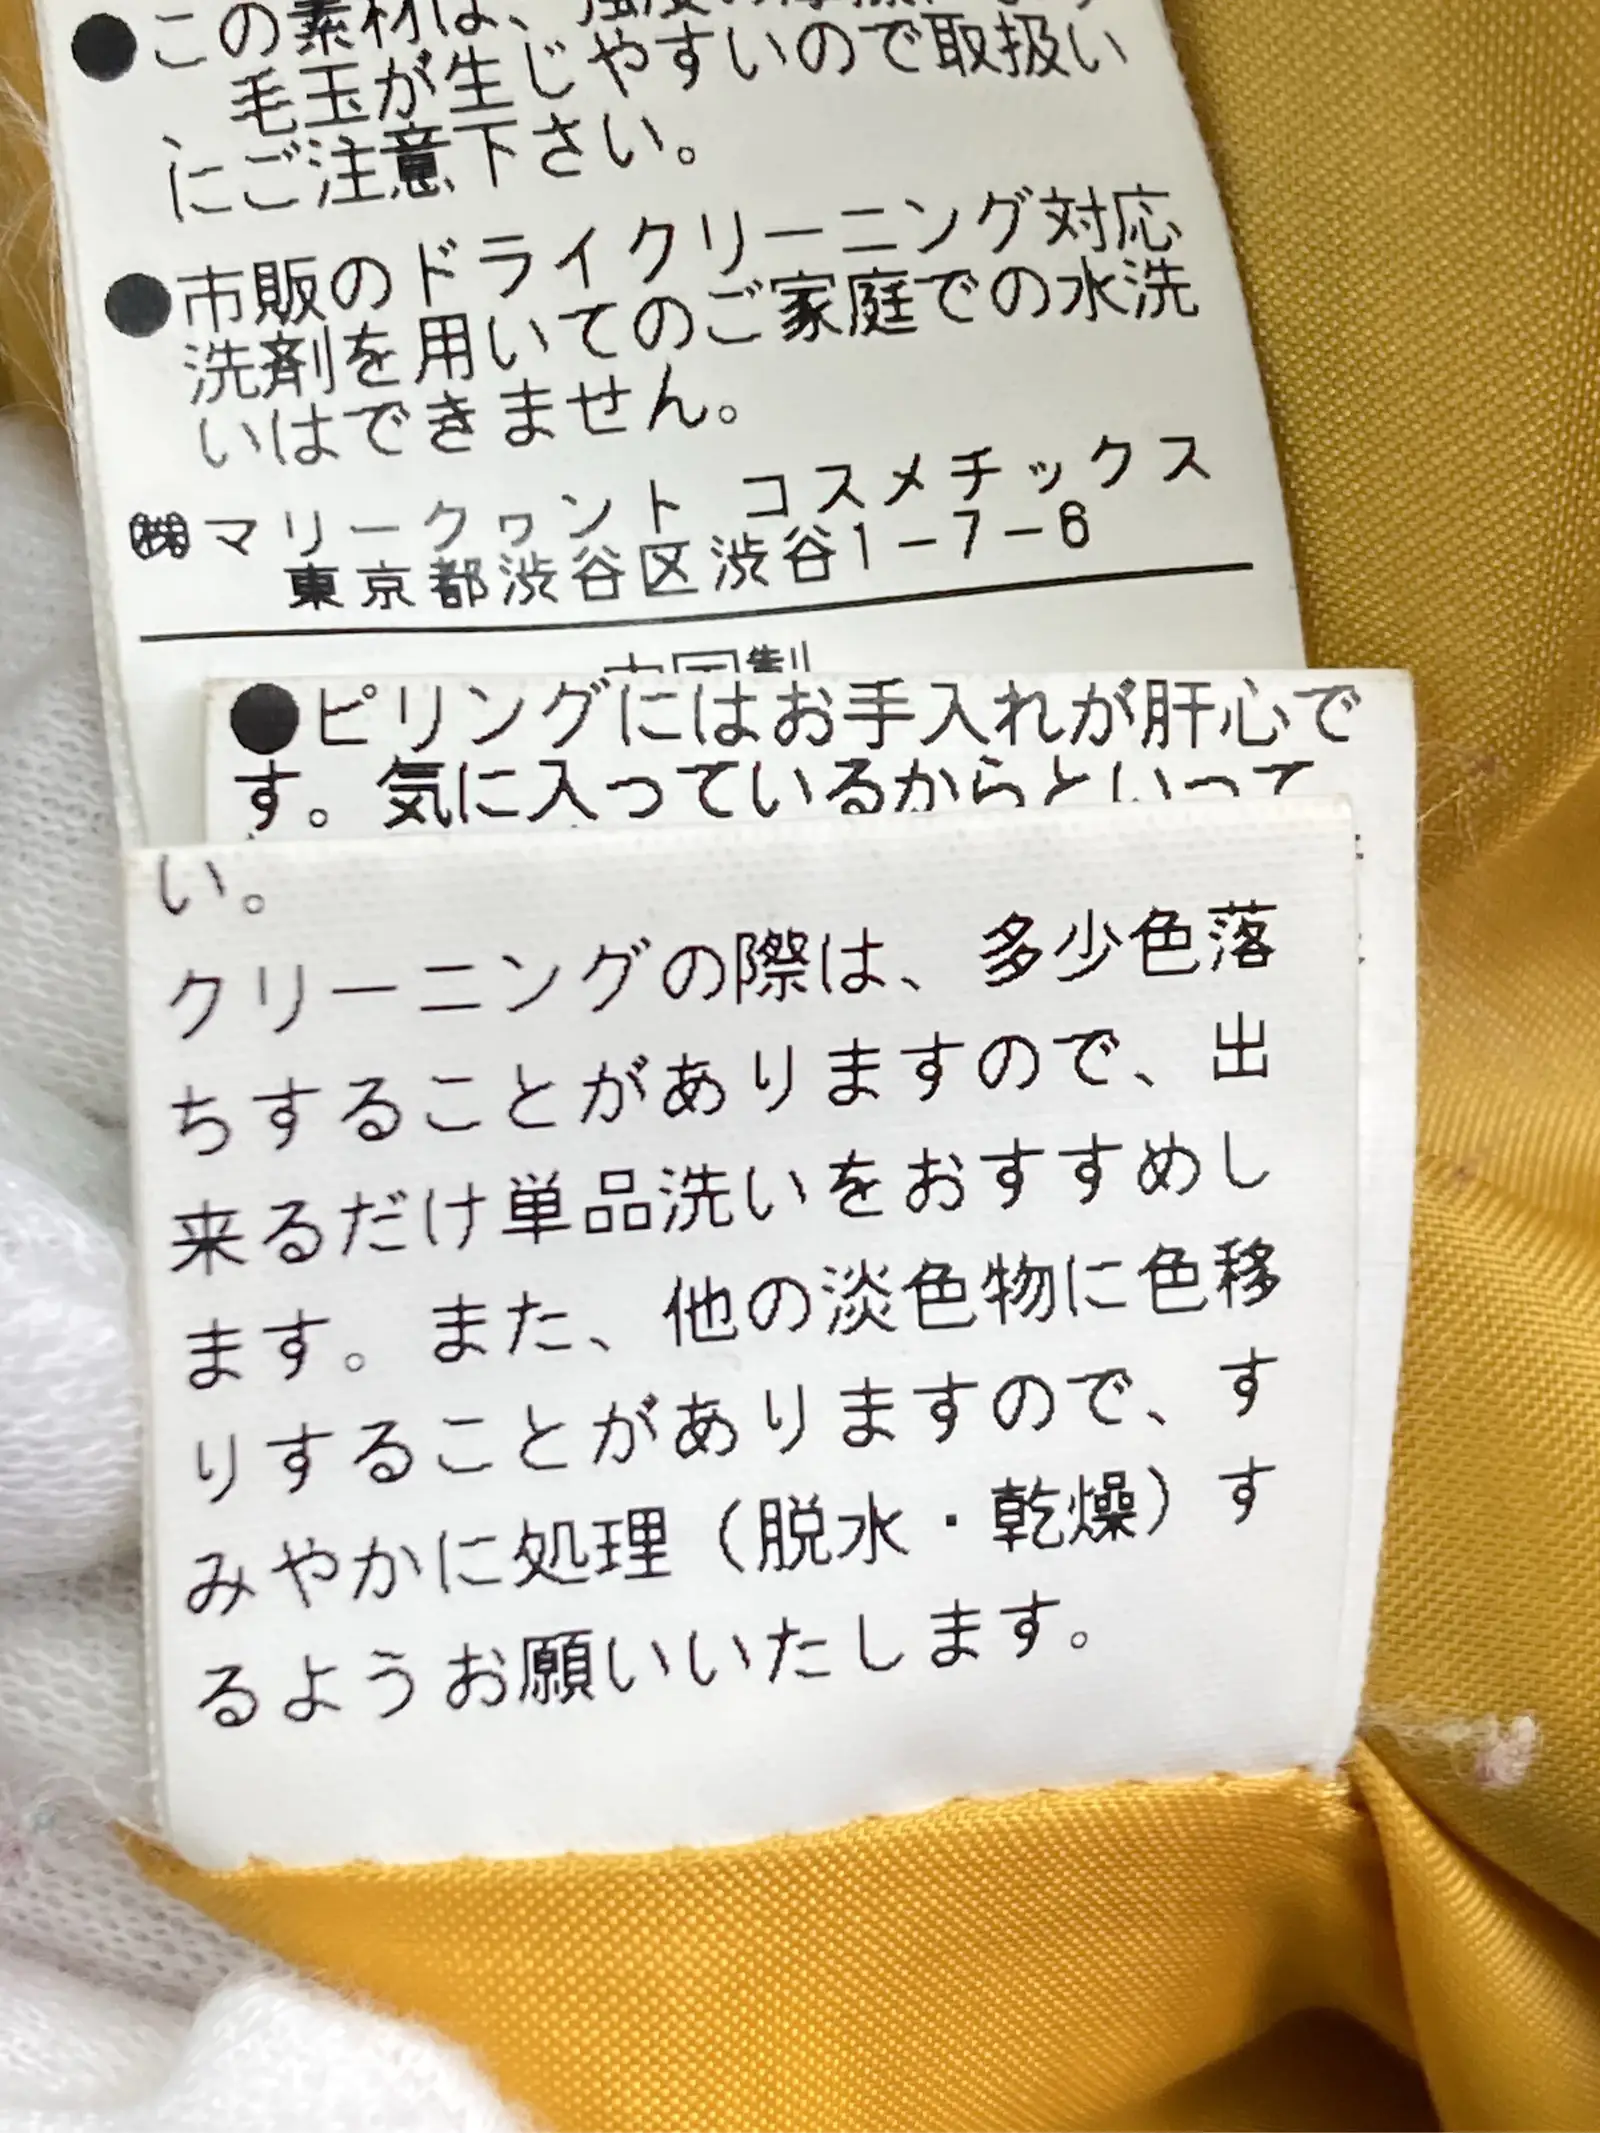 ●この素材は、
、毛玉が生じやすいので取扱い
にご注意下さい。
●市販のドライクリーニング対応
洗剤を用いてのご家庭での水洗
いはできません。
㈱マリークヮント コスメチックス
東京都渋谷区渋谷1-7-6
●ピリングにはお手入れが肝心で
す。気に入っているからといって
い。
クリーニングの際は、多少色落
ちすることがありますので、出
来るだけ単品洗いをおすすめし
ます。また、他の淡色物に色移
りすることがありますので、す
みやかに処理(脱水・乾燥)す
るようお願いいたします。